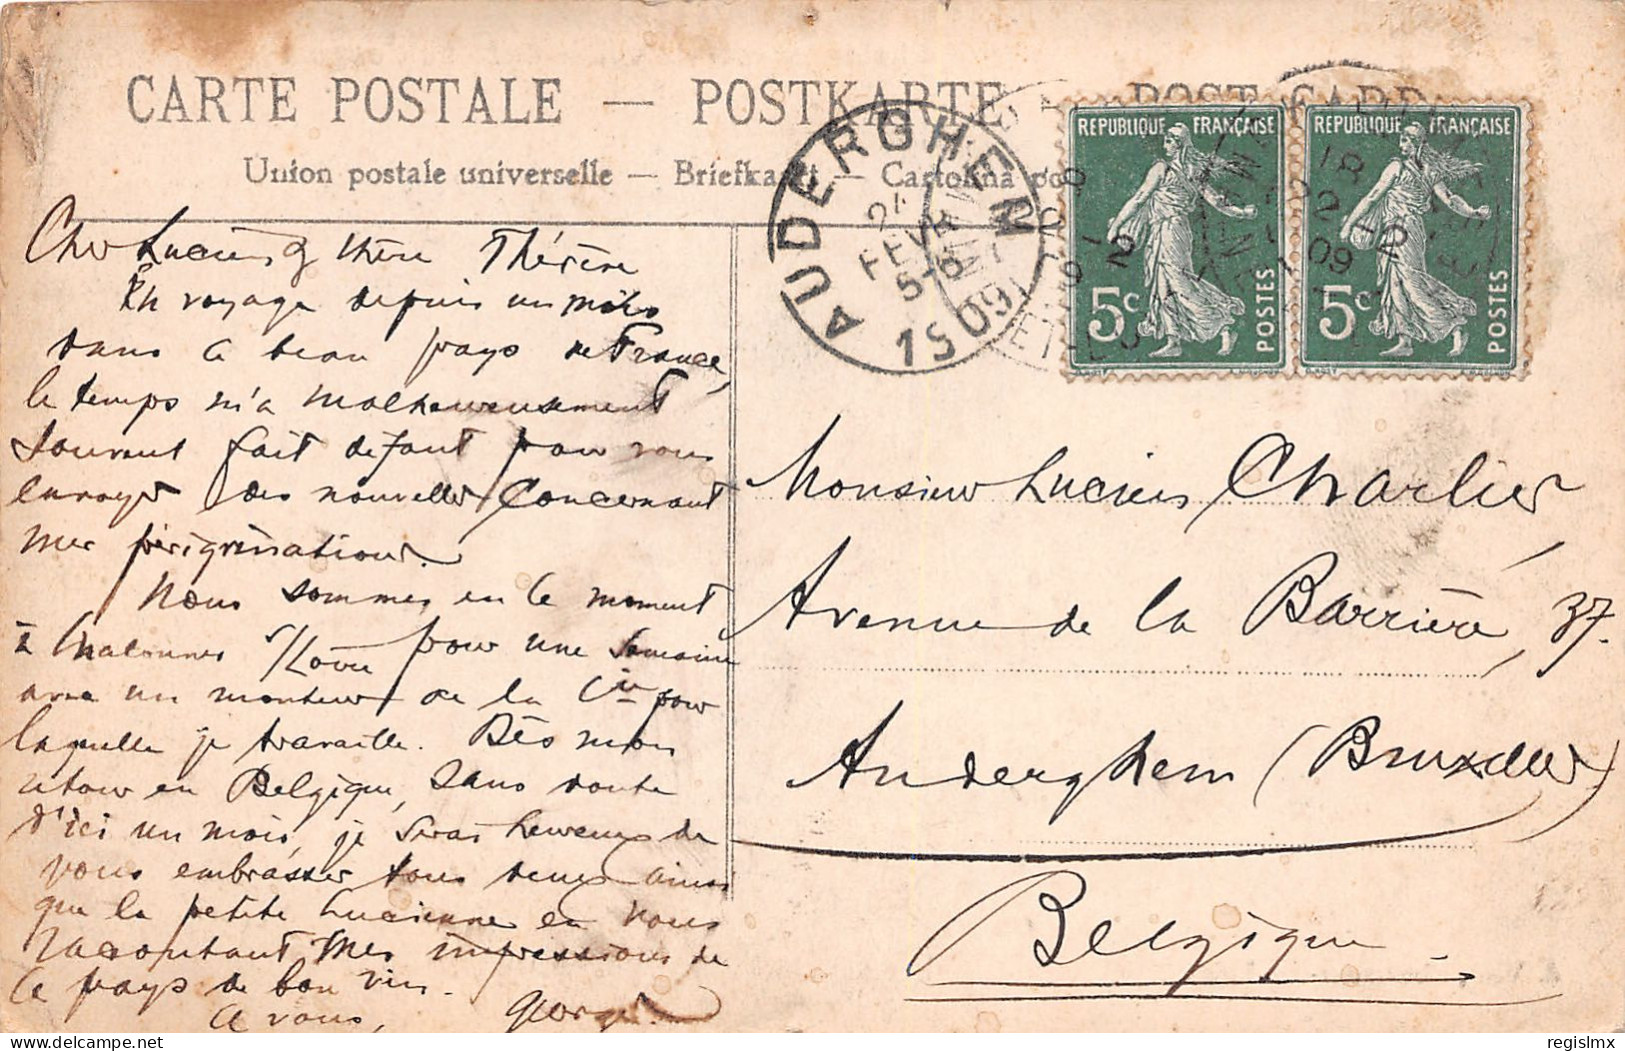 CARTE POSTALE — POSTKARTE — POST CARD
Union postale universelle — Briefkaart — Cartolina po
AUDERGHEM
21
FEVR
5-6
1909
REPUBLIQUE FRANÇAISE
5c
POSTES
REPUBLIQUE FRANÇAISE
5c
POSTES
18
2
09
Cher Lucien & chère Thérèse
En voyage depuis un mois
dans ce beau pays de France,
le temps m'a malheureusement
souvent fait défaut pour vous
envoyer des nouvelles concernant
mes pérégrinations.
Nous sommes en ce moment
à Chalonnes s/Loire pour une semaine
avec un monteur de la Cie pour
laquelle je travaille. Dès mon
retour en Belgique, sans doute
d'ici un mois, je serai heureux de
vous embrasser tous deux ainsi
que la petite Lucienne en vous
racontant mes impressions de
ce pays de bon vin.
A vous, Georges.
Monsieur Lucien Charlier
Avenue de la Barrière, 37.
Auderghem (Bruxelles)
Belgique
regislmx
delcampe.net